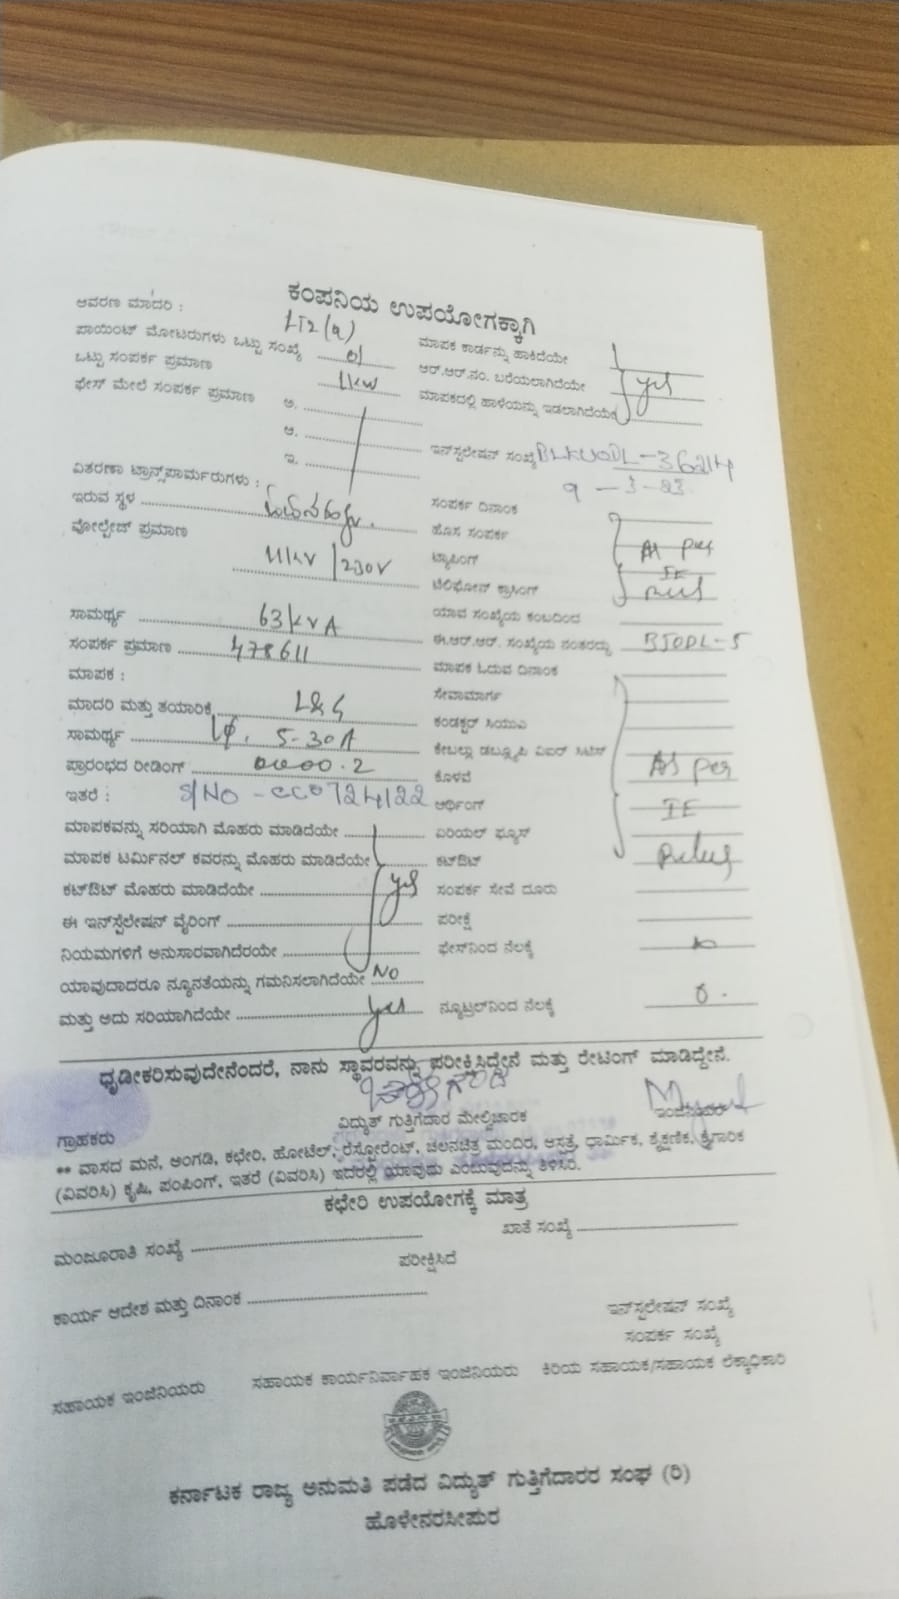 ಕಂಪನಿಯ ಉಪಯೋಗಕ್ಕಾಗಿ
ಆವರಣ ಮಾದರಿ : LT2(a)
ಪಾಯಿಂಟ್ ಮೋಟರುಗಳು ಒಟ್ಟು ಸಂಖ್ಯೆ 01
ಒಟ್ಟು ಸಂಪರ್ಕ ಪ್ರಮಾಣ 1kw
ಫೇಸ್ ಮೇಲೆ ಸಂಪರ್ಕ ಪ್ರಮಾಣ ಅ.
ಆ.
ಇ.
ವಿತರಣಾ ಟ್ರಾನ್ಸ್‌ಫಾರ್ಮರುಗಳು :
ಇರುವ ಸ್ಥಳ
ವೋಲ್ಟೇಜ್ ಪ್ರಮಾಣ 11kv/230V
ಸಾಮರ್ಥ್ಯ 63kvA
ಸಂಪರ್ಕ ಪ್ರಮಾಣ 478611
ಮಾಪಕ :
ಮಾದರಿ ಮತ್ತು ತಯಾರಿಕೆ L&G
ಸಾಮರ್ಥ್ಯ 1φ, 5-30A
ಪ್ರಾರಂಭದ ರೀಡಿಂಗ್ 0000.2
ಇತರೆ : S/NO - CC0724122
ಮಾಪಕವನ್ನು ಸರಿಯಾಗಿ ಮೊಹರು ಮಾಡಿದೆಯೇ
ಮಾಪಕ ಟರ್ಮಿನಲ್ ಕವರನ್ನು ಮೊಹರು ಮಾಡಿದೆಯೇ
ಕಟ್‌ಔಟ್ ಮೊಹರು ಮಾಡಿದೆಯೇ yes
ಈ ಇನ್‌ಸ್ಟಲೇಷನ್ ವೈರಿಂಗ್
ನಿಯಮಗಳಿಗೆ ಅನುಸಾರವಾಗಿದೆರಯೇ
ಯಾವುದಾದರೂ ನ್ಯೂನತೆಯನ್ನು ಗಮನಿಸಲಾಗಿದೆಯೇ NO
ಮತ್ತು ಅದು ಸರಿಯಾಗಿದೆಯೇ yes
ಮಾಪಕ ಕಾರ್ಡನ್ನು ಹಾಕಿದೆಯೇ
ಆರ್.ಆರ್.ನಂ. ಬರೆಯಲಾಗಿದೆಯೇ yes
ಮಾಪಕದಲ್ಲಿ ಹಾಳೆಯನ್ನು ಇಡಲಾಗಿದೆಯೇ
ಇನ್‌ಸ್ಟಲೇಷನ್ ಸಂಖ್ಯೆ BLKUODL-36214
ಸಂಪರ್ಕ ದಿನಾಂಕ 9-3-23
ಹೊಸ ಸಂಪರ್ಕ
ಟ್ಯಾಪಿಂಗ್ As per
ಟೆಲಿಫೋನ್ ಕ್ರಾಸಿಂಗ್ IE Rules
ಯಾವ ಸಂಖ್ಯೆಯ ಕಂಬದಿಂದ
ಈ.ಆರ್.ಆರ್. ಸಂಖ್ಯೆಯ ನಂತರದ್ದು
ಮಾಪಕ ಓದುವ ದಿನಾಂಕ
ಸೇವಾಮಾರ್ಗ
ಕಂಡಕ್ಟರ್ ಸಿಯುಎ
ಕೊಳವೆ As per
ಅರ್ಥಿಂಗ್ IE
ಏರಿಯಲ್ ಫ್ಯೂಸ್
ಕಟ್‌ಔಟ್ Rules
ಸಂಪರ್ಕ ಸೇವೆ ದೂರು
ಪರೀಕ್ಷೆ
ಫೇಸ್‌ನಿಂದ ನೆಲಕ್ಕೆ
ನ್ಯೂಟ್ರಲ್‌ನಿಂದ ನೆಲಕ್ಕೆ
ಧೃಡೀಕರಿಸುವುದೇನೆಂದರೆ, ನಾನು ಸ್ಥಾವರವನ್ನು ಪರೀಕ್ಷಿಸಿದ್ದೇನೆ ಮತ್ತು ರೇಟಿಂಗ್ ಮಾಡಿದ್ದೇನೆ.
ಗ್ರಾಹಕರು ವಿದ್ಯುತ್ ಗುತ್ತಿಗೆದಾರ ಮೇಲ್ವಿಚಾರಕ ಇಂಜಿನಿಯರ್
** ವಾಸದ ಮನೆ, ಅಂಗಡಿ, ಕಛೇರಿ, ಹೋಟೆಲ್, ರೆಸ್ಟೋರೆಂಟ್, ಚಲನಚಿತ್ರ ಮಂದಿರ, ಆಸ್ಪತ್ರೆ, ಧಾರ್ಮಿಕ, ಶೈಕ್ಷಣಿಕ, ಕೈಗಾರಿಕ
(ವಿವರಿಸಿ) ಕೃಷಿ, ಪಂಪಿಂಗ್, ಇತರೆ (ವಿವರಿಸಿ) ಇದರಲ್ಲಿ ಯಾವುದು ಎಂಬುವುದನ್ನು ತಿಳಿಸಿರಿ.
ಕಛೇರಿ ಉಪಯೋಗಕ್ಕೆ ಮಾತ್ರ
ಮಂಜೂರಾತಿ ಸಂಖ್ಯೆ ಖಾತೆ ಸಂಖ್ಯೆ
ಪರೀಕ್ಷಿಸಿದೆ
ಕಾರ್ಯ ಆದೇಶ ಮತ್ತು ದಿನಾಂಕ
ಇನ್‌ಸ್ಟಲೇಷನ್ ಸಂಖ್ಯೆ
ಸಂಪರ್ಕ ಸಂಖ್ಯೆ
ಸಹಾಯಕ ಇಂಜಿನಿಯರು ಸಹಾಯಕ ಕಾರ್ಯನಿರ್ವಾಹಕ ಇಂಜಿನಿಯರು ಕಿರಿಯ ಸಹಾಯಕ/ಸಹಾಯಕ ಲೆಕ್ಕಾಧಿಕಾರಿ
ಕರ್ನಾಟಕ ರಾಜ್ಯ ಅನುಮತಿ ಪಡೆದ ವಿದ್ಯುತ್ ಗುತ್ತಿಗೆದಾರರ ಸಂಘ (ರಿ)
ಹೊಳೇನರಸೀಪುರ